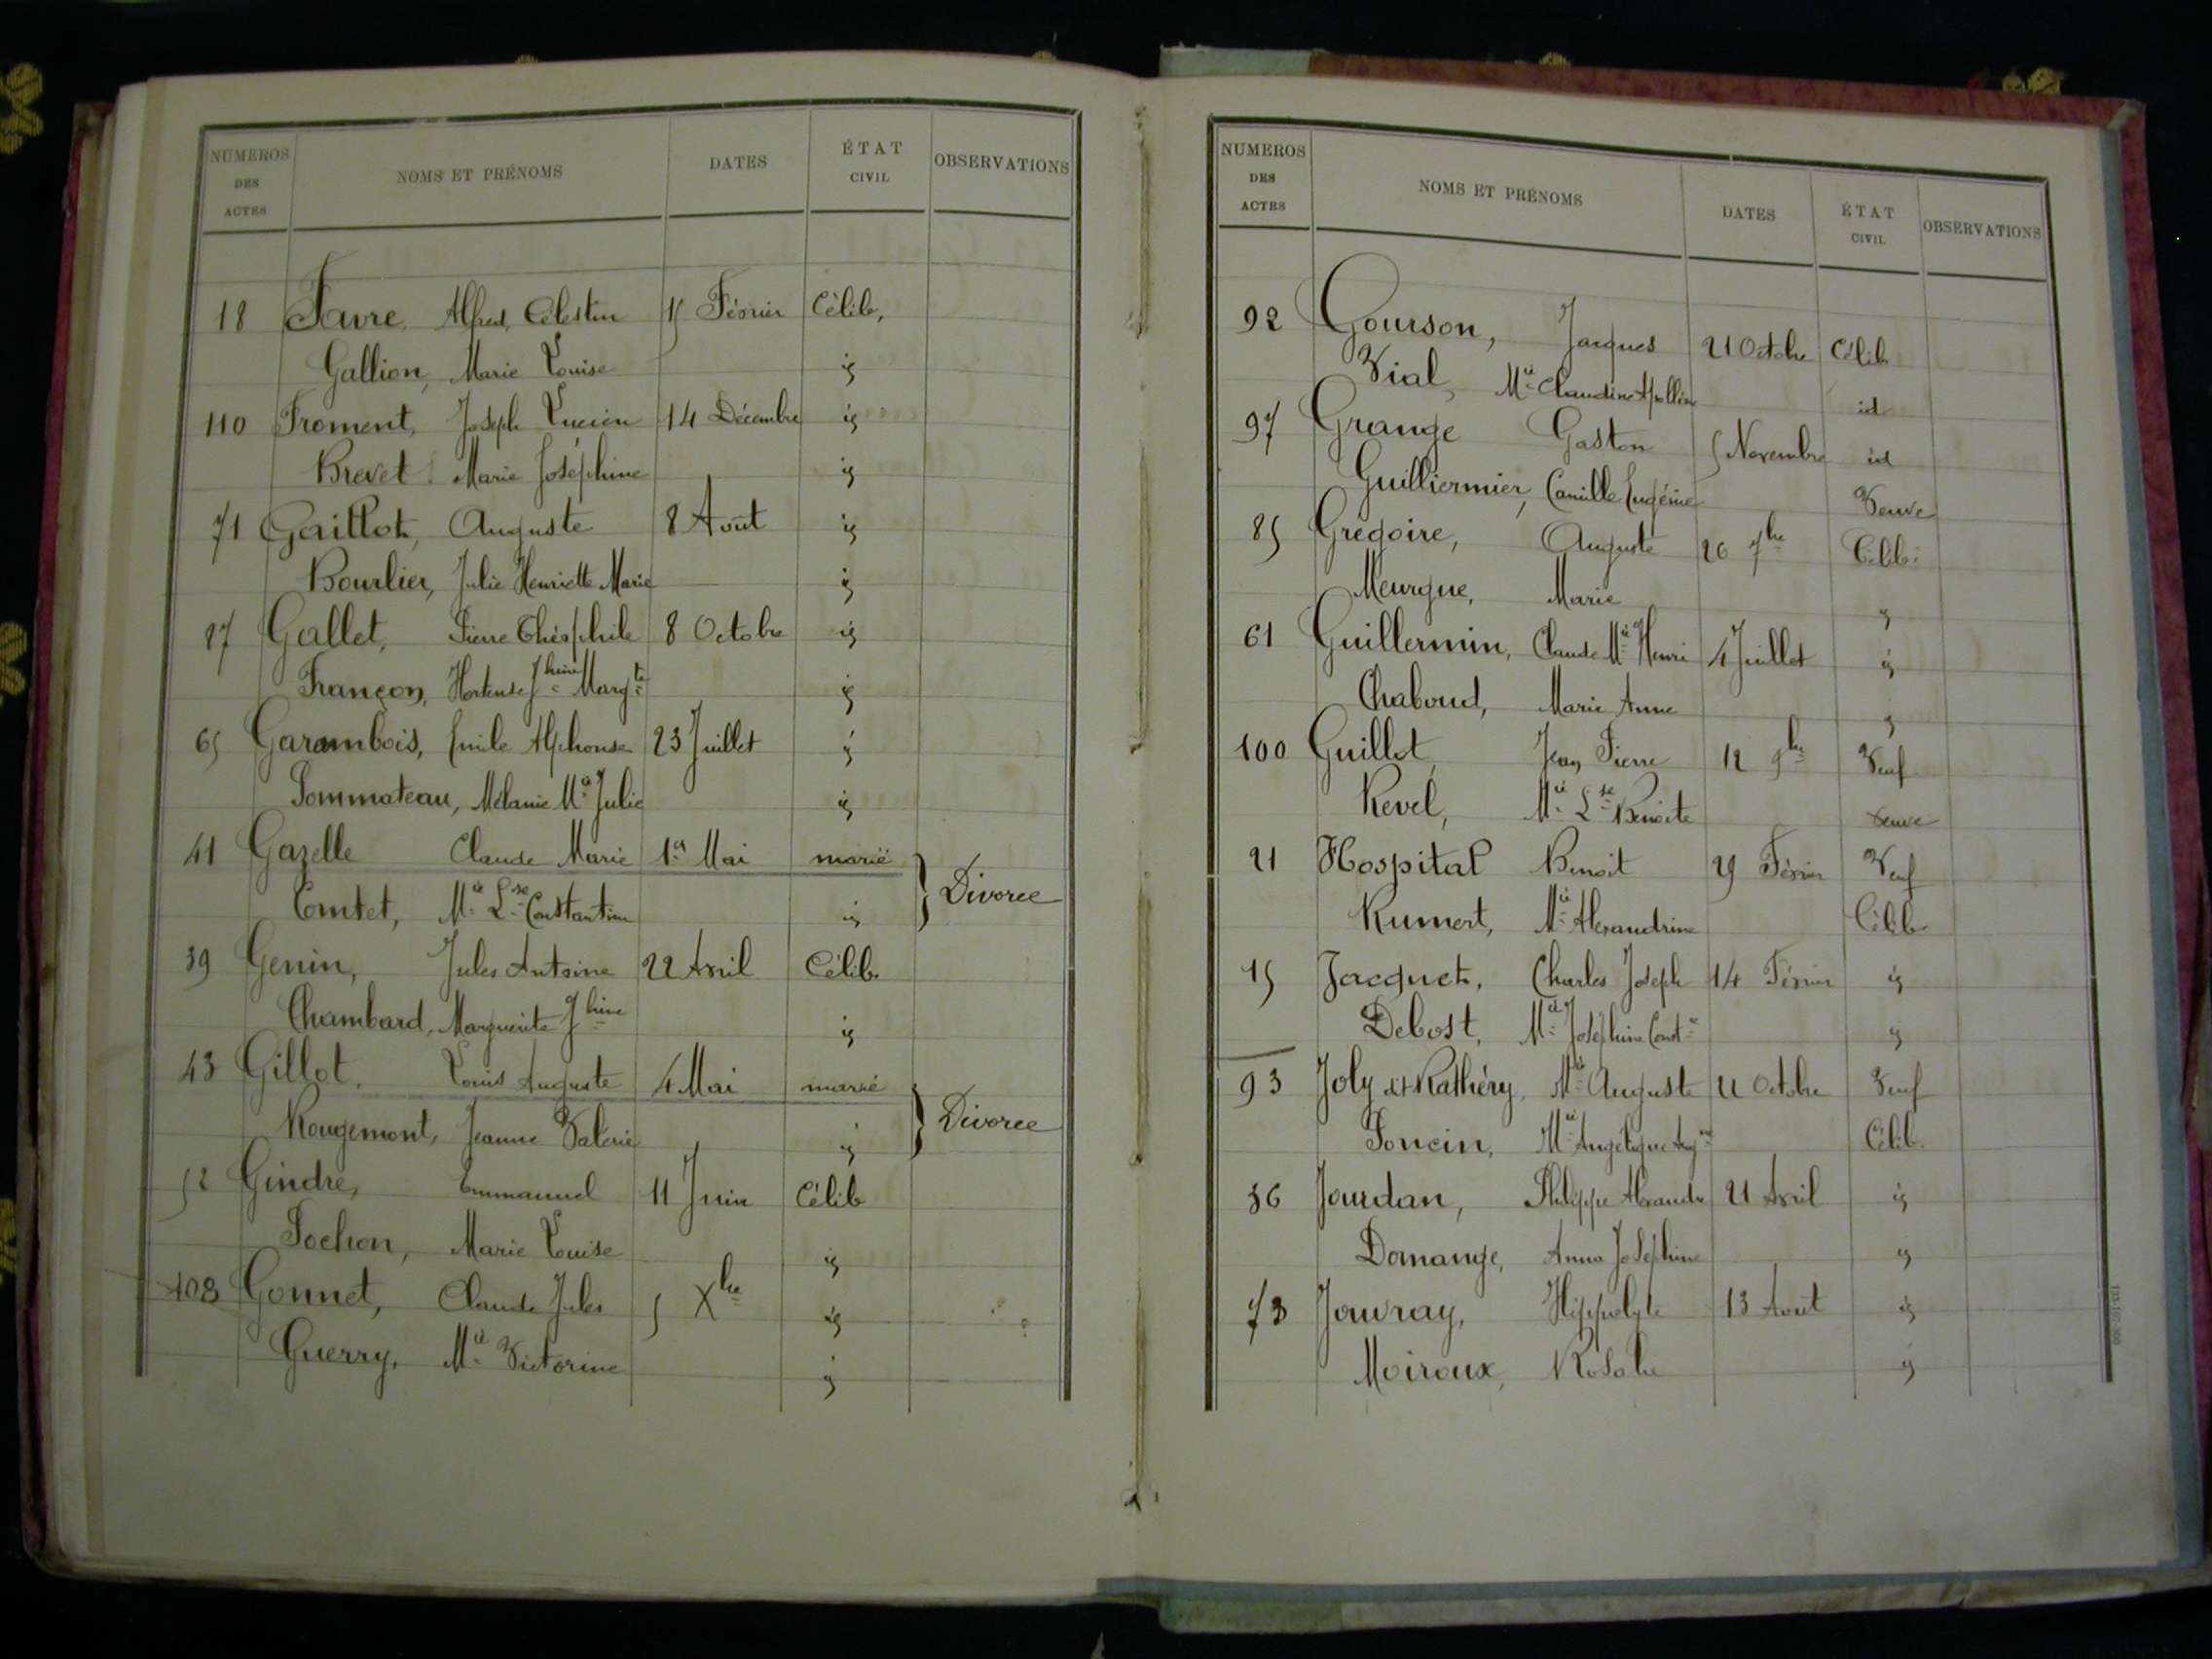 NUMEROS DES ACTES NOMS ET PRÉNOMS DATES ÉTAT CIVIL OBSERVATIONS
18 Favre, Alfred, Célestin 15 Février Célib.
Gallion, Marie Louise id
110 Froment, Joseph Lucien 14 Décembre id
Brevet Marie Joséphine id
71 Gaillot, Auguste 8 Août id
Bourlier, Julie Henriette Marie id
87 Gallet, Pierre Théophile 8 Octobre id
Françon, Hortense Jhine Margte id
65 Garambois, Emile Alphonse 23 Juillet id
Pommateau, Mélanie Mie Julie id
41 Gazelle Claude Marie 1er Mai marié
Comtet, Mie Lse Constantine id
Divorce
39 Genin, Jules Antoine 22 Avril Célib.
Chambard, Marguerite Jhine id
43 Gillot, Louis Auguste 4 Mai marié
Rougemont, Jeanne Valérie id
Divorce
52 Gindre, Emmanuel 11 Juin Célib
Pochon, Marie Louise id
108 Gonnet, Claude Jules 5 Xbre id
Guerry, Mie Victorine id
NUMEROS DES ACTES NOMS ET PRÉNOMS DATES ÉTAT CIVIL OBSERVATIONS
92 Gourson, Jacques 21 Octobre Célib
Vial, Mie Claudine Apolline id
97 Grange Gaston 5 Novembre id
Guilliermier, Camille Eugénie Veuve
85 Grégoire, Auguste 26 7bre Célib.
Meurgue, Marie id
61 Guillermin, Claude Mie Henri 4 Juillet id
Chaboud, Marie Anne id
100 Guillot, Jean Pierre 12 9bre Veuf
Revel, Mie Lse Benoite Veuve
21 Hospital Benoit 29 Février Veuf
Rumert, Mie Alexandrine Célib
15 Jacquet, Charles Joseph 14 Février id
Debost, Mie Joséphine Const id
93 Joly dit Rathéry, Mie Auguste 21 Octobre Veuf
Poncin, Mie Angélique Célib.
36 Jourdan, Philippe Alexandre 21 Avril id
Domange, Anna Joséphine id
73 Jouvray, Hippolyte 13 Août id
Moiroux, Rosalie id